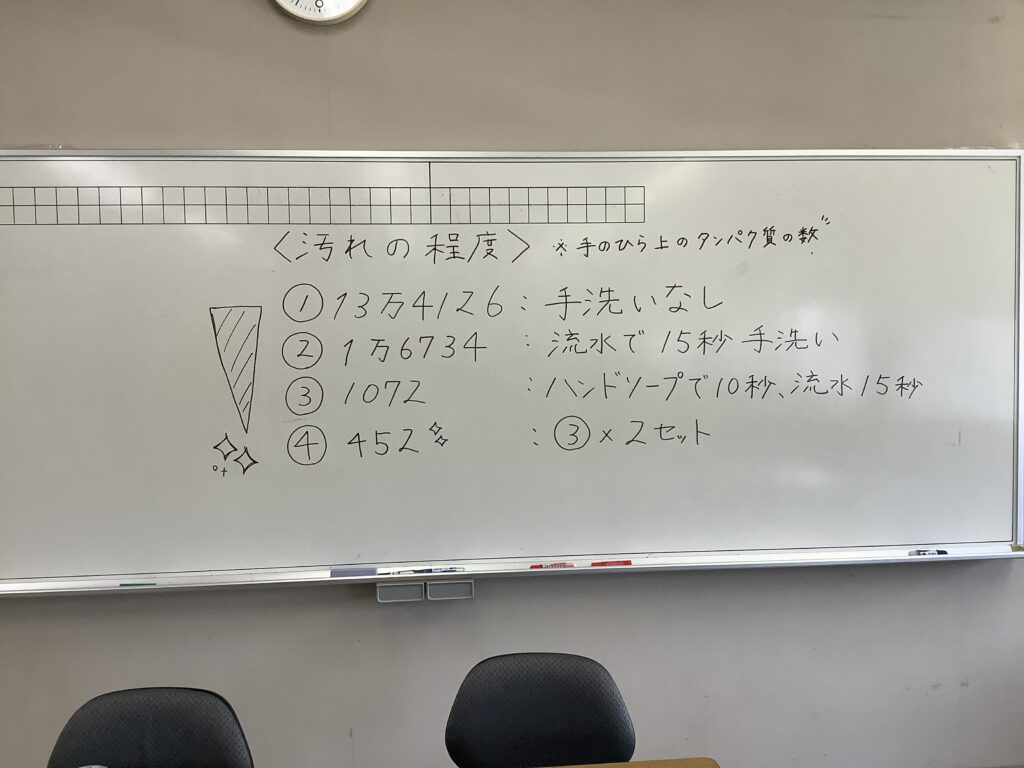 〈汚れの程度〉 ※手のひら上のタンパク質の数
① 13万4126 : 手洗いなし
② 1万6734 : 流水で15秒手洗い
③ 1072 : ハンドソープで10秒、流水15秒
④ 452 : ③×2セット